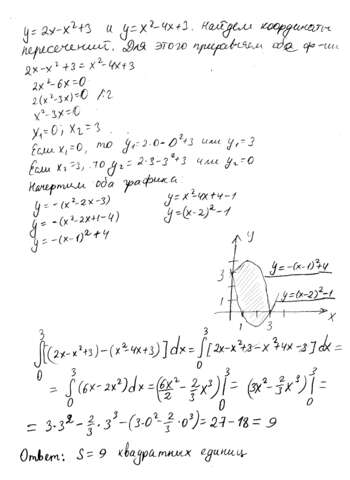 y=2x-x²+3 и y=x²-4x+3. Найдем координаты
пересечений. Для этого приравняем оба ф-ии
2x-x²+3=x²-4x+3
2x²-6x=0
2(x²-3x)=0 /:2
x²-3x=0
x₁=0; x₂=3.
Если x₁=0, то y₁=2·0-0²+3 или y₁=3
Если x₂=3, то y₂=2·3-3²+3 или y₂=0
Начертим оба графика
y=-(x²-2x-3) y=x²-4x+4-1
y=-(x²-2x+1-4) y=(x-2)²-1
y=-(x-1)²+4
y
3
1
1 3 x
y=-(x-1)²+4
y=(x-2)²-1
∫₀³[(2x-x²+3)-(x²-4x+3)]dx=∫₀³[2x-x²+3-x²+4x-3]dx=
=∫₀³(6x-2x²)dx=(6x²/2-2/3x³)|₀³=(3x²-2/3x³)|₀³=
=3·3²-2/3·3³-(3·0²-2/3·0³)=27-18=9
Ответ: S=9 квадратных единиц